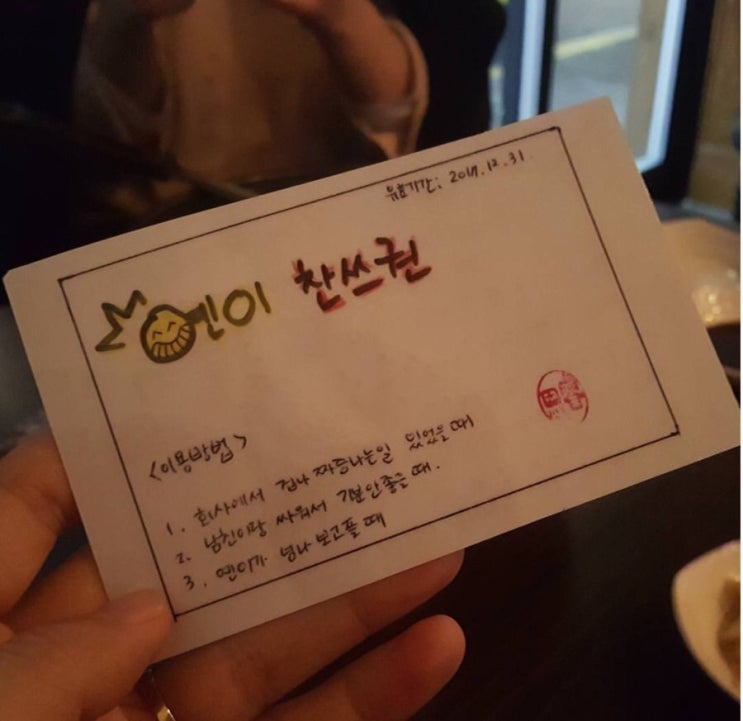 유효기간: 2017.12.31.
옌이 찬쓰권
<이용방법>
1. 회사에서 겁나 짜증나는일 있었을때
2. 남친이랑 싸워서 기분안좋을때.
3. 옌이가 넘나 보고플때